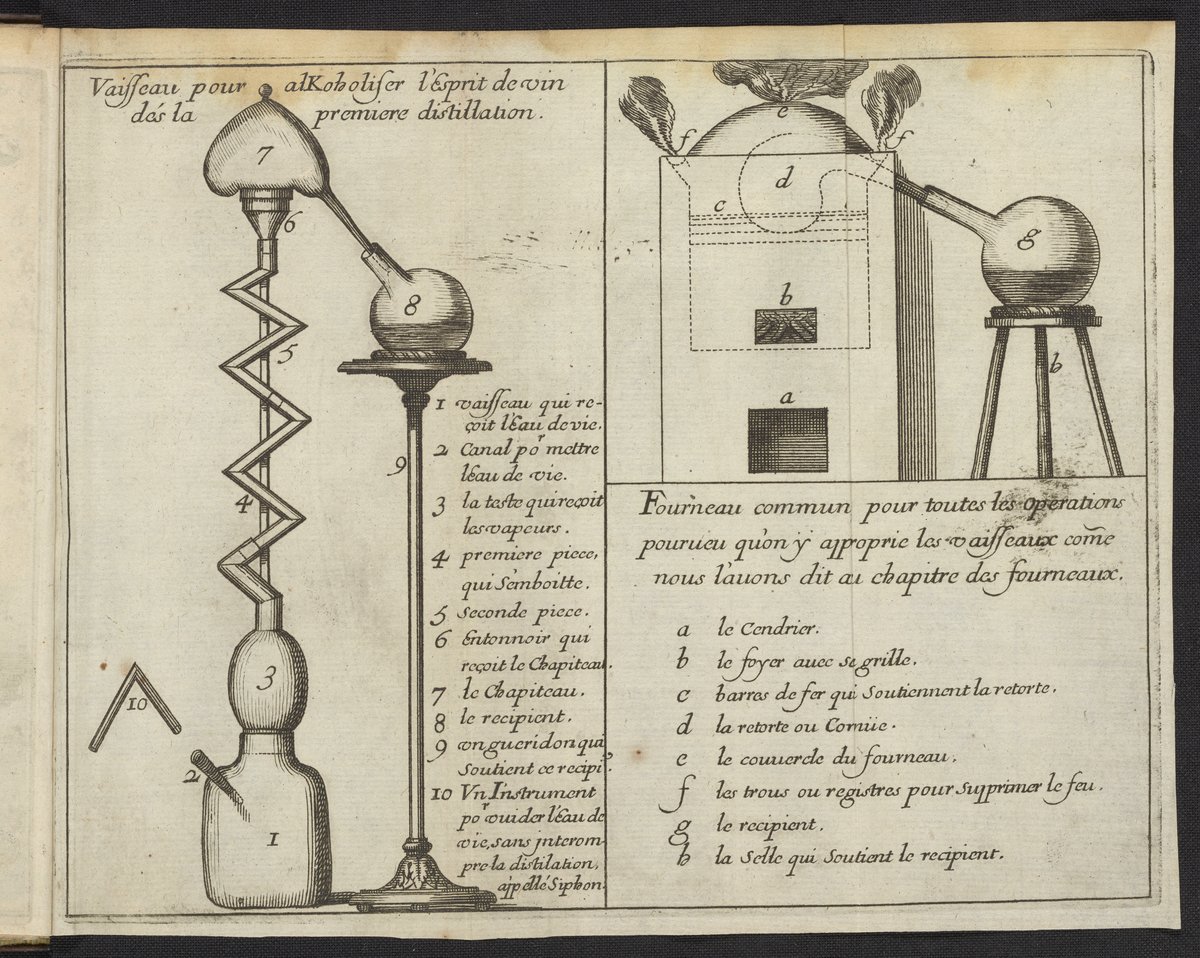 Vaisseau pour alKoholiser l'Esprit de vin
dés la premiere distillation.
7
6
8
5
4
9
3
10
2
1
1 vaisseau qui re-
çoit l'Eau de vie.
2 Canal po^r mettre
l'éau de vie.
3 la teste qui reçoit
les vapeurs.
4 premiere piece,
qui S'emboitte.
5 Seconde piece.
6 Entonnoir qui
reçoit le Chapiteau.
7 le Chapiteau.
8 le recipient.
9 vn gueridon qui
Soutient ce recipi^t.
10 Vn Instrument
po^r vuider l'Eau de
vie, sans jnterom-
pre la distilation,
appellé Siphon.
e
f f
d
c
g
b
h
a
Fourneau commun pour toutes les operations
pourueu qu'on y approprie les vaisseaux com̃e
nous l'auons dit au chapitre des fourneaux.
a le Cendrier.
b le foyer auec sa grille.
c barres de fer qui Soutiennent la retorte.
d la retorte ou Cornüe.
e le couuercle du fourneau.
f les trous ou registres pour Supprimer le feu.
g le recipient.
h la Selle qui Soutient le recipient.